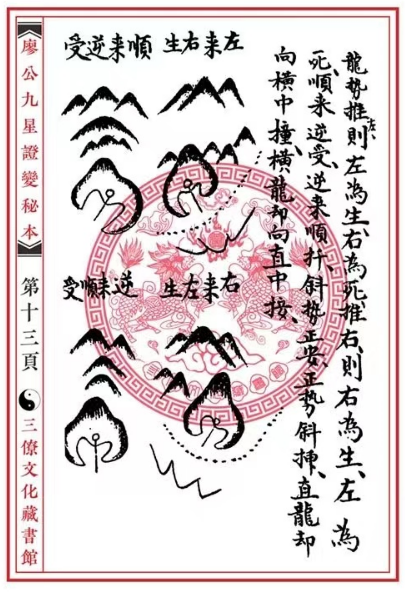 龍勢推左、則左為生、右為死、推右、則右為生、左為
死、順来逆受、逆来順扦、斜势正安、正势斜挿、直龍却
向横中撞、横龍却向直中接、
左来右生
順来逆受
右来左生
逆来順受
廖公九星證變秘本
第十三頁
三僚文化藏書館